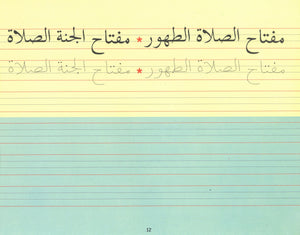 مفتاح الصلاة الطهور * مفتاح الجنة الصلاة
مفتاح الصلاة الطهور * مفتاح الجنة الصلاة
12